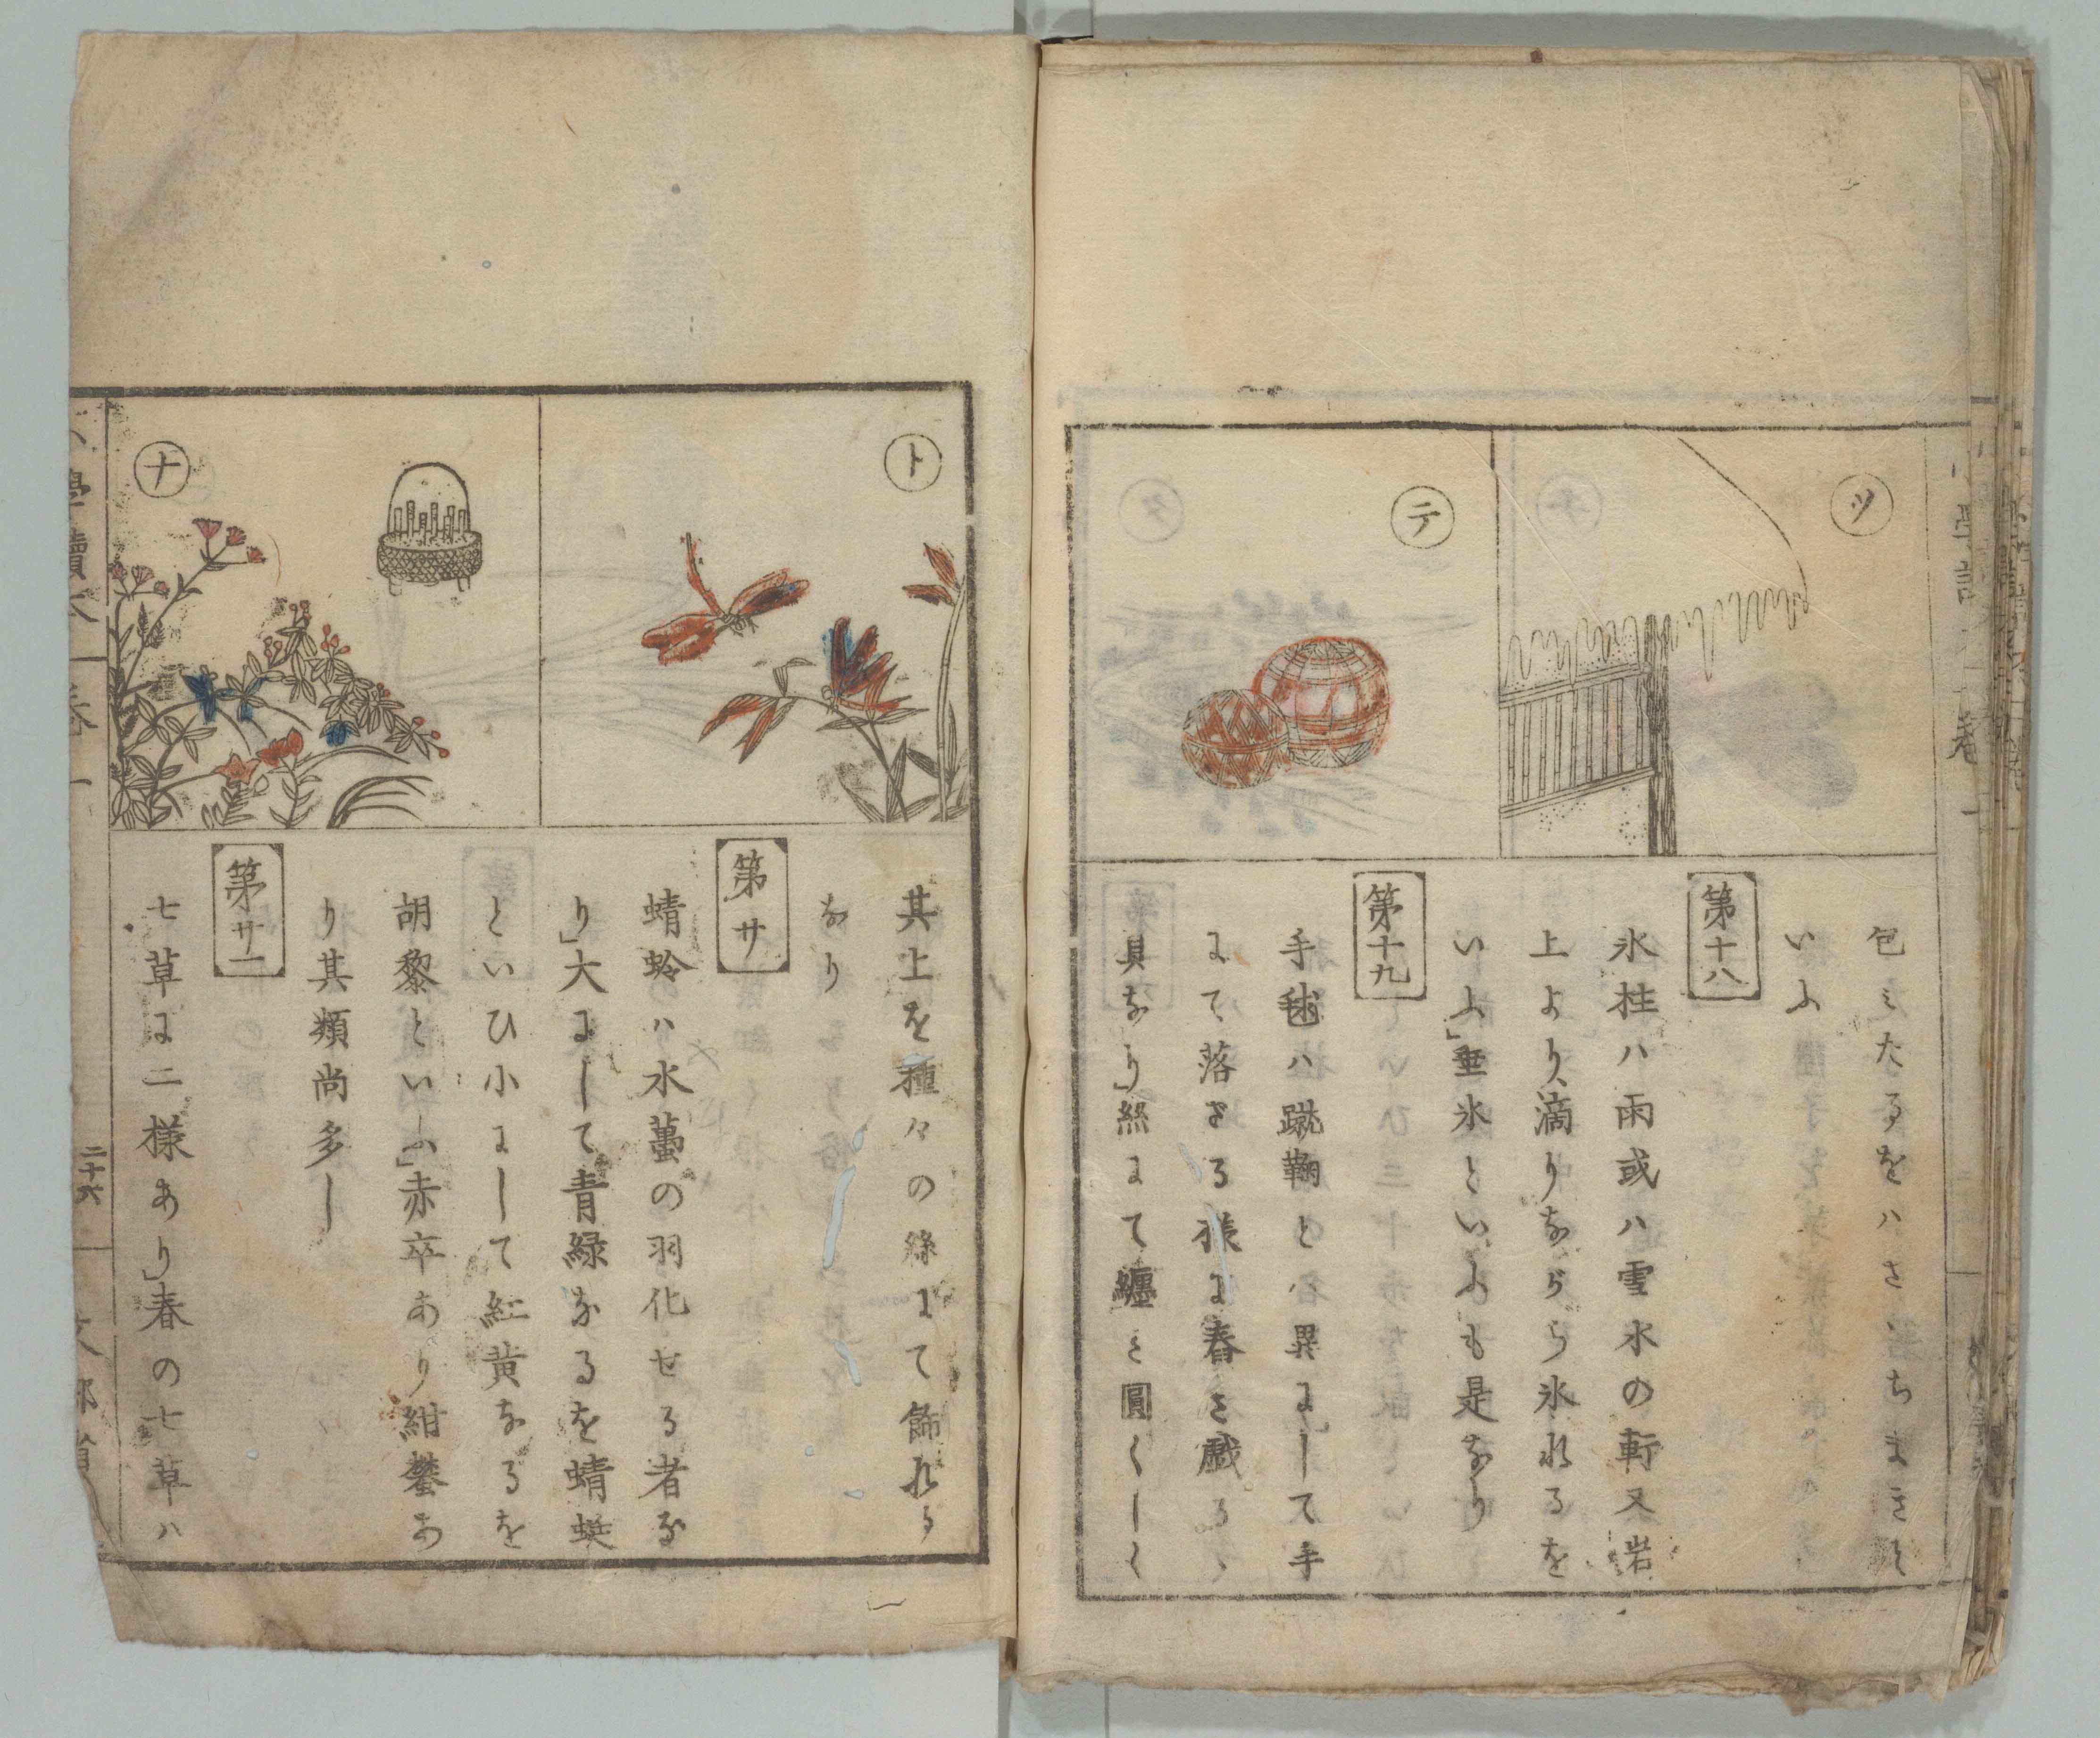 ツ
テ
包ミたるをハさゝ
ちまきと
いふ
第十八
氷柱ハ雨或ハ雪水の軒又岩
上より、滴りながら氷れるを
いふ」垂氷といふも是なり
第十九
手毬ハ蹴鞠とハ異にして手
にて落さる様に舂き戯るゝ
具なり」絲にて纏き圓くしく
ト
ナ
其上を種々の絲にて飾れる
なり
第廿
蜻蛉ハ水蠆の羽化せる者な
り」大にして青緑なるを蜻蜓
といひ小にして紅黄なるを
胡黎といふ」赤卒あり紺蠜あ
り其類尚多し
第廿一
七草に二様あり」春の七草ハ
小學讀本
卷一
二十六
文部省